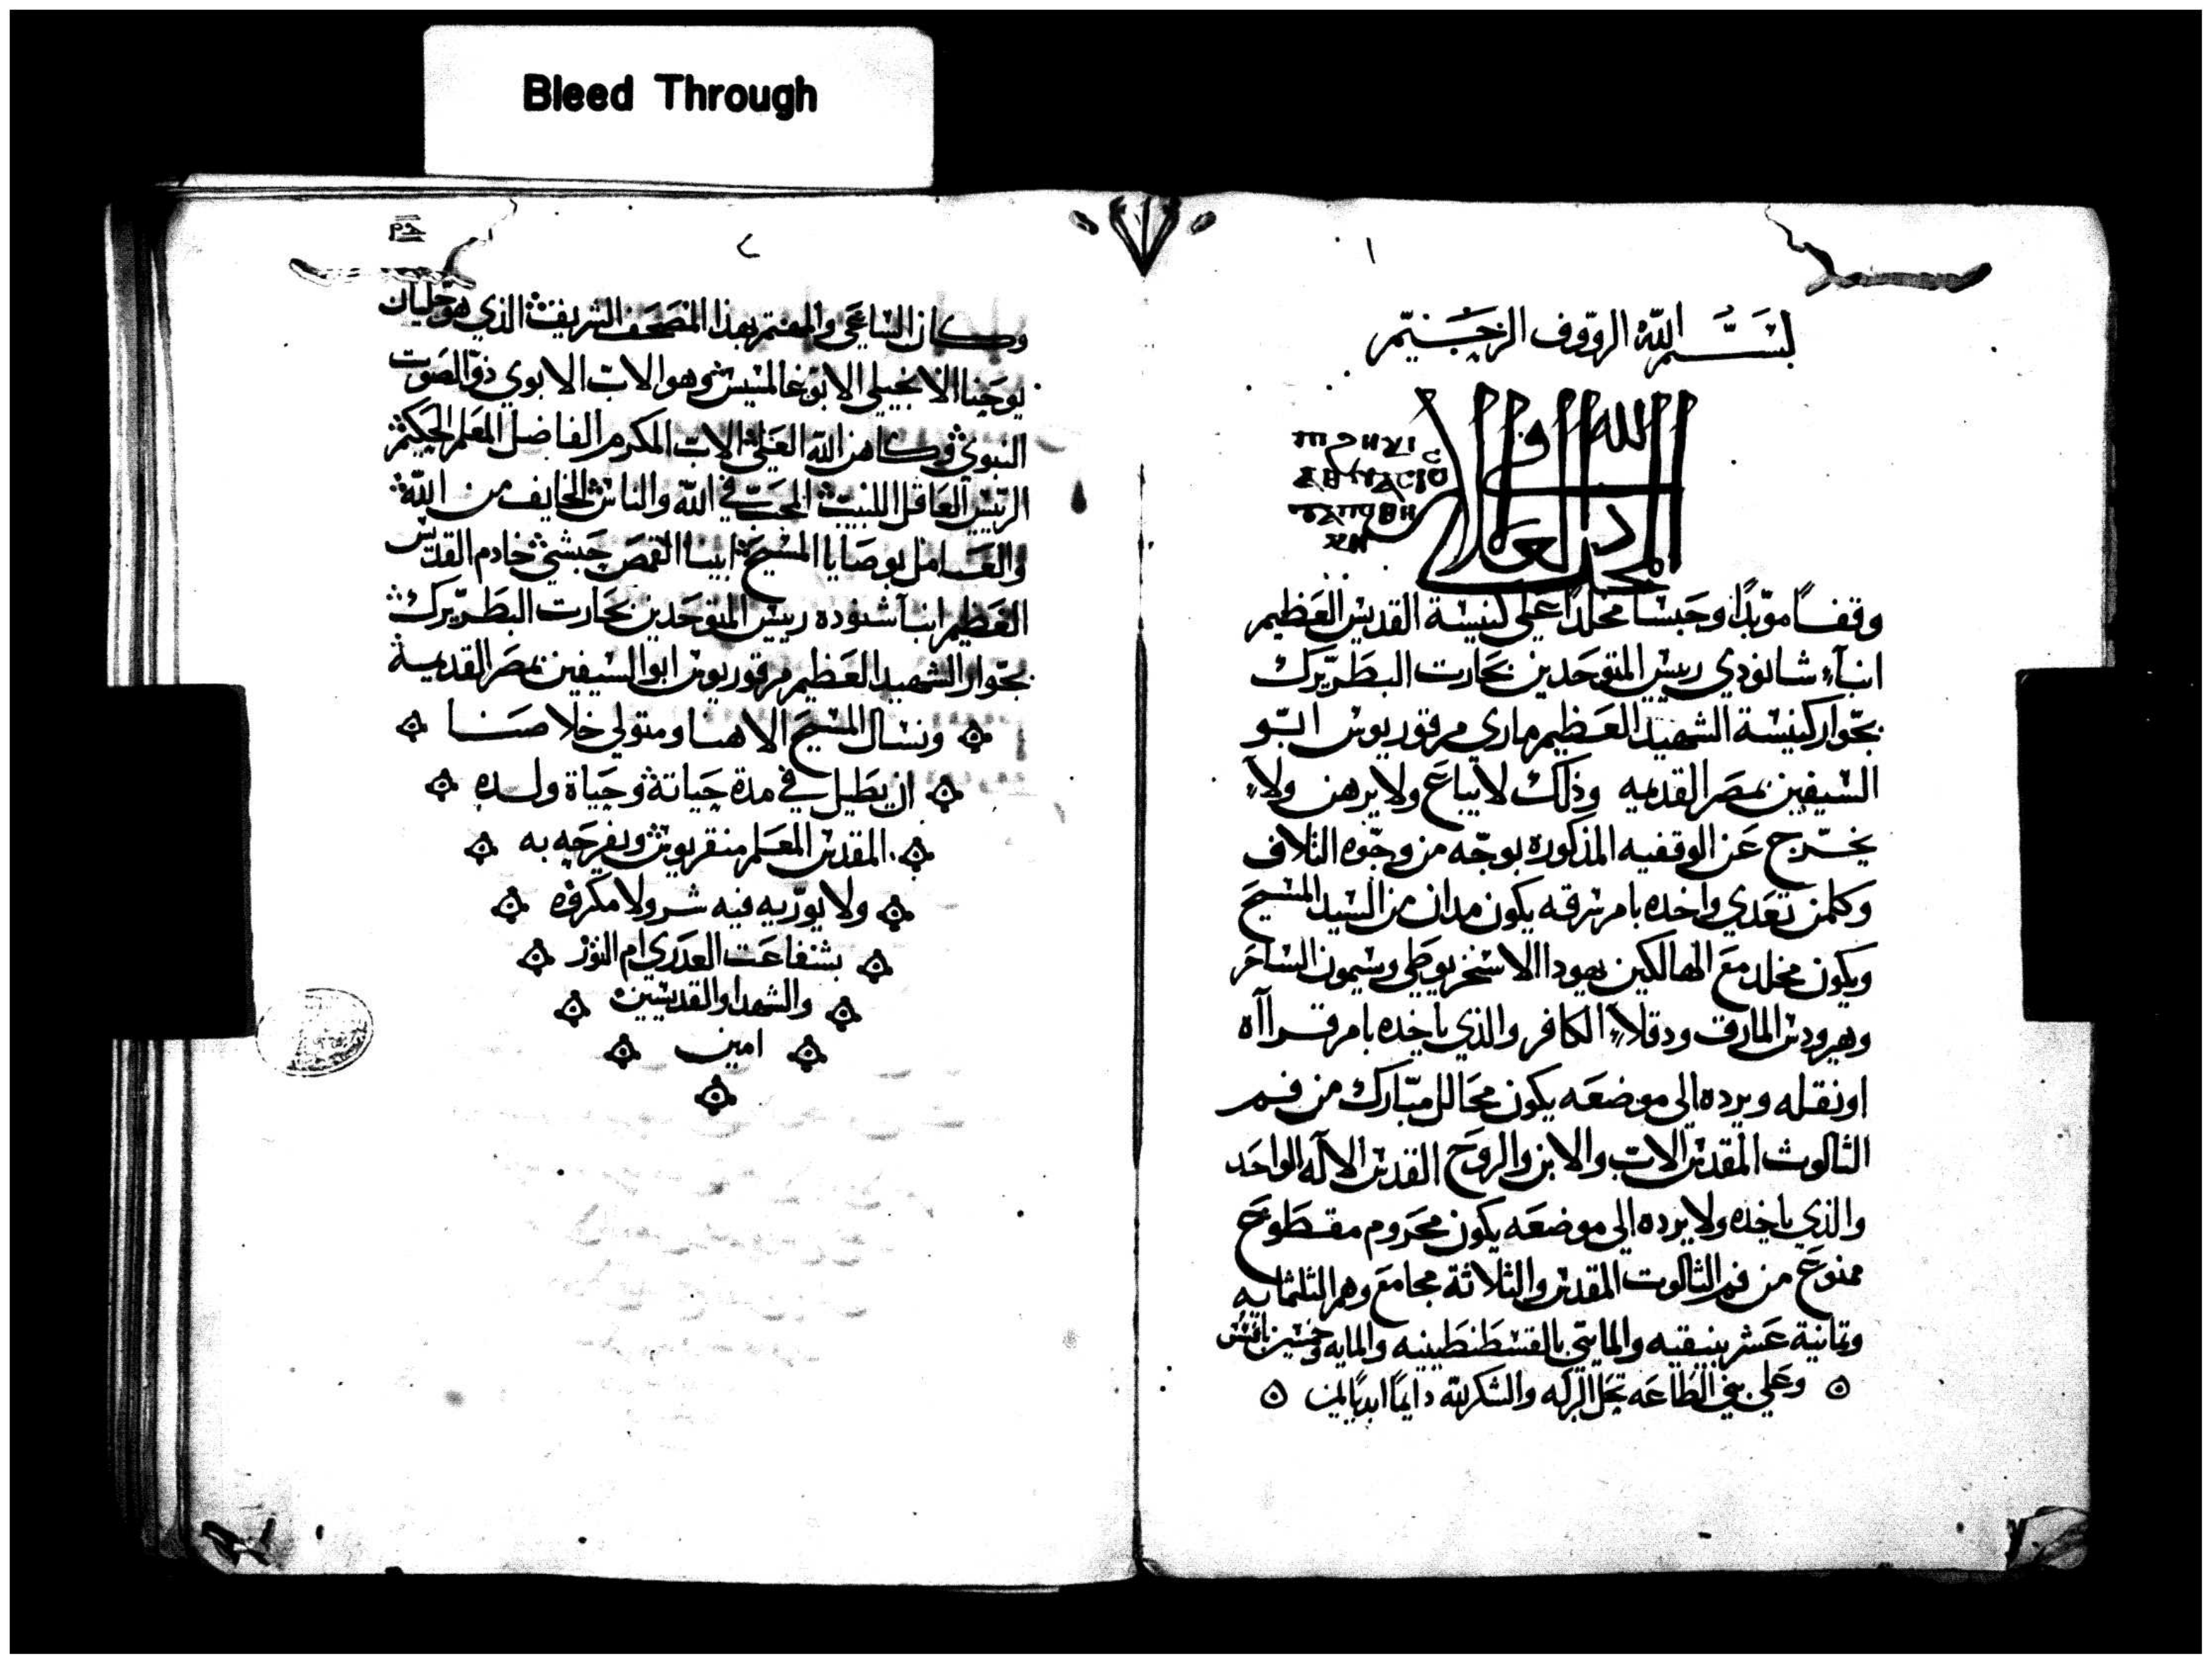 Bleed Through
١
بسم الله الرووف الرحيم
المجد لله في العلا
وقفاً موبداً وحبساً مخلداً على كنيسة القديس العظيم
انباء شانودي رييس المتوحدين بحارت البطريرك
بجوار كنيسة الشهيد العظيم ماري مرقوريوس ابو
السيفين بمصر القديمه وذلك لايباع ولايرهن ولاء
يخرج عن الوقفيه المذكوره بوجه من وجوه التلاف
وكلمن تعدي واخده بامر سرقه يكون مدان من السيد المسيح
ويكون مخلد مع الهالكين يهودا الاسخريوطي وسيمون الساحر
وهيرودس المارق ودقلاء الكافر والذي ياخده بامر قرااه
اونقله ويرده الي موضعه يكون محالل مبارك من فم
الثالوث المقدس الاب والابن والروح القدس الاله الواحد
والذي ياخده ولايرده الي موضعه يكون محروم مقطوع
ممنوع من فم الثالوت المقدس والثلاثة مجامع وهم الثلثمايه
وتمانية عشر بنيقيه والمايتي بالقسطنطينيه والمايه وخمسين بافسس
وعلي بني الطاعه تحل البركه والشكر لله دايماً ابدياً امين
٢
وكان الساعي والمهتم بهذا المصحف الشريف الذي هو جليان
يوحنا الانجيلي الابوغالمسيس وهو الاب الابوي ذو الصوت
النبوي وكاهن الله العلي الاب المكرم الفاضل المعلم الحكيم
الرييس العاقل اللبيب المحب في الله والناس الخايف من الله
والعامل بوصايا المسيح ابينا القمص حبشي خادم القديس
العظيم انبا شنوده رييس المتوحدين بحارت البطريرك
بجوار الشهيد العظيم مرقوريوس ابو السيفين بمصر القديمة
ونسال المسيح الاهنا ومتولي خلاصنا
ان يطيل في مدة حياته وحياة ولده
المقدس المعلم منقريوس ويفرحه به
ولا يوريه فيه شر ولا مكروه
بشفاعت العدري ام النور
والشهدا والقديسين
امين